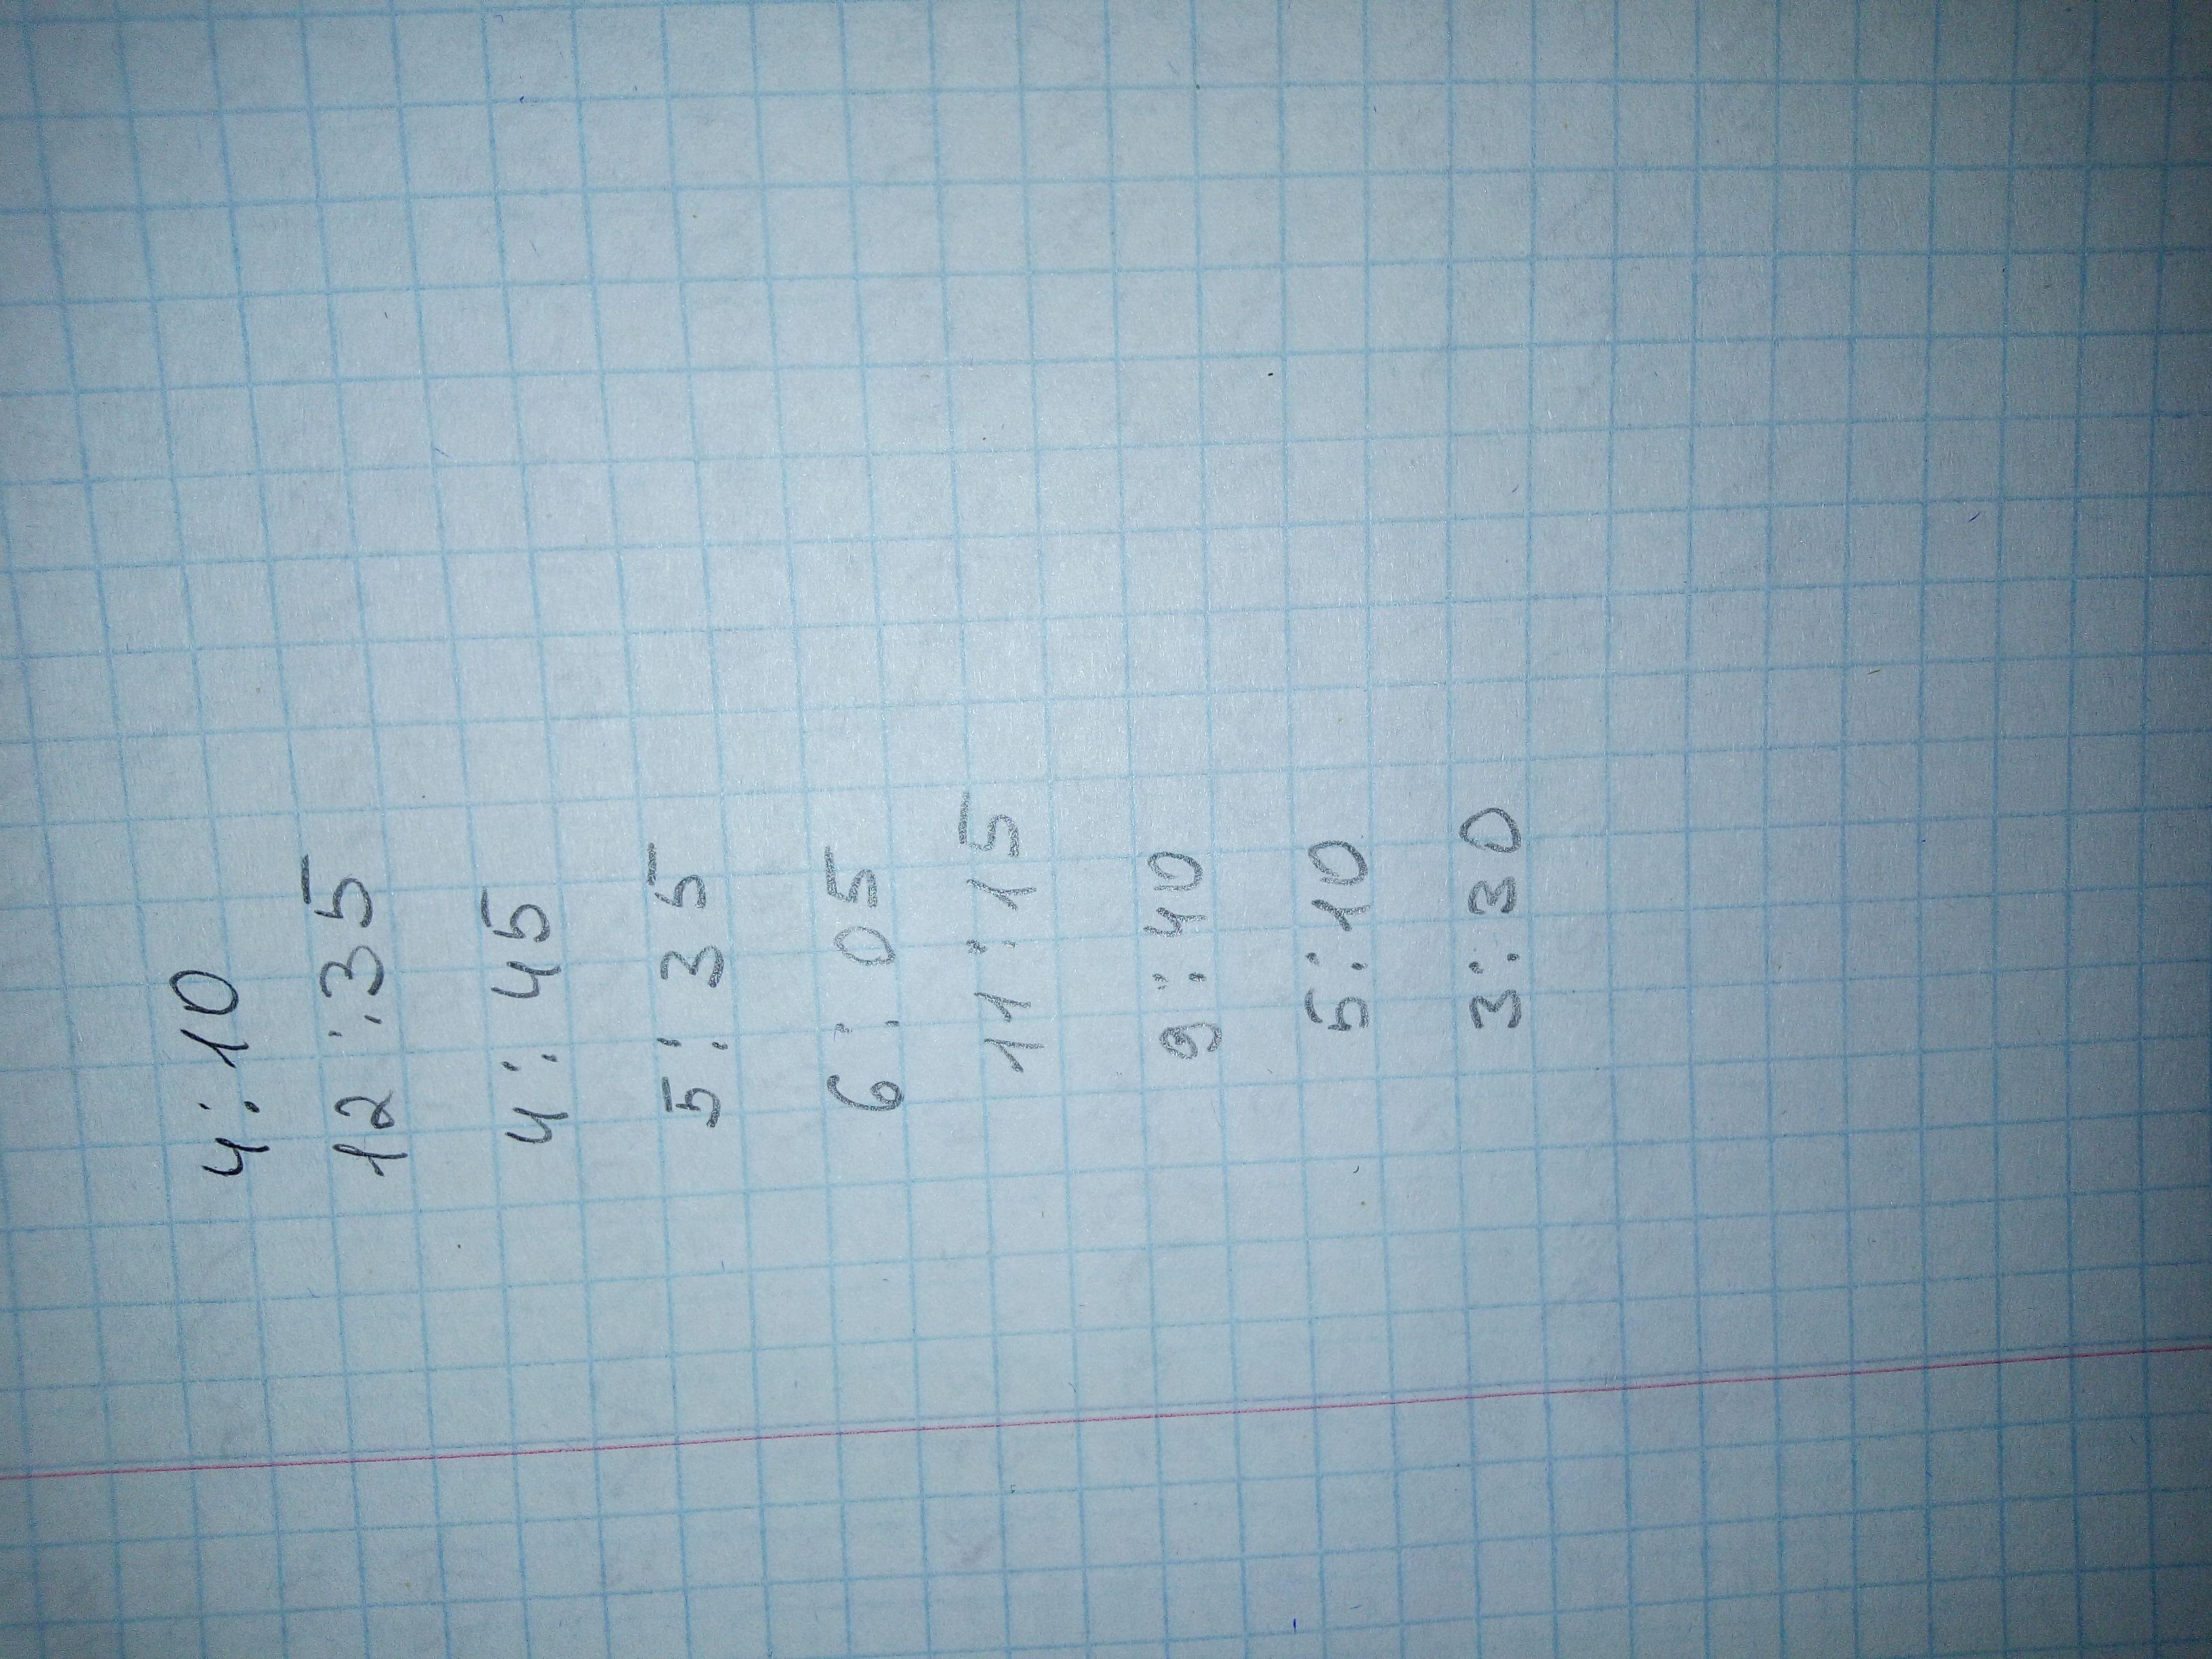 4:10
12:35
4:45
5:35
6:05
11:15
9:40
5:10
3:30